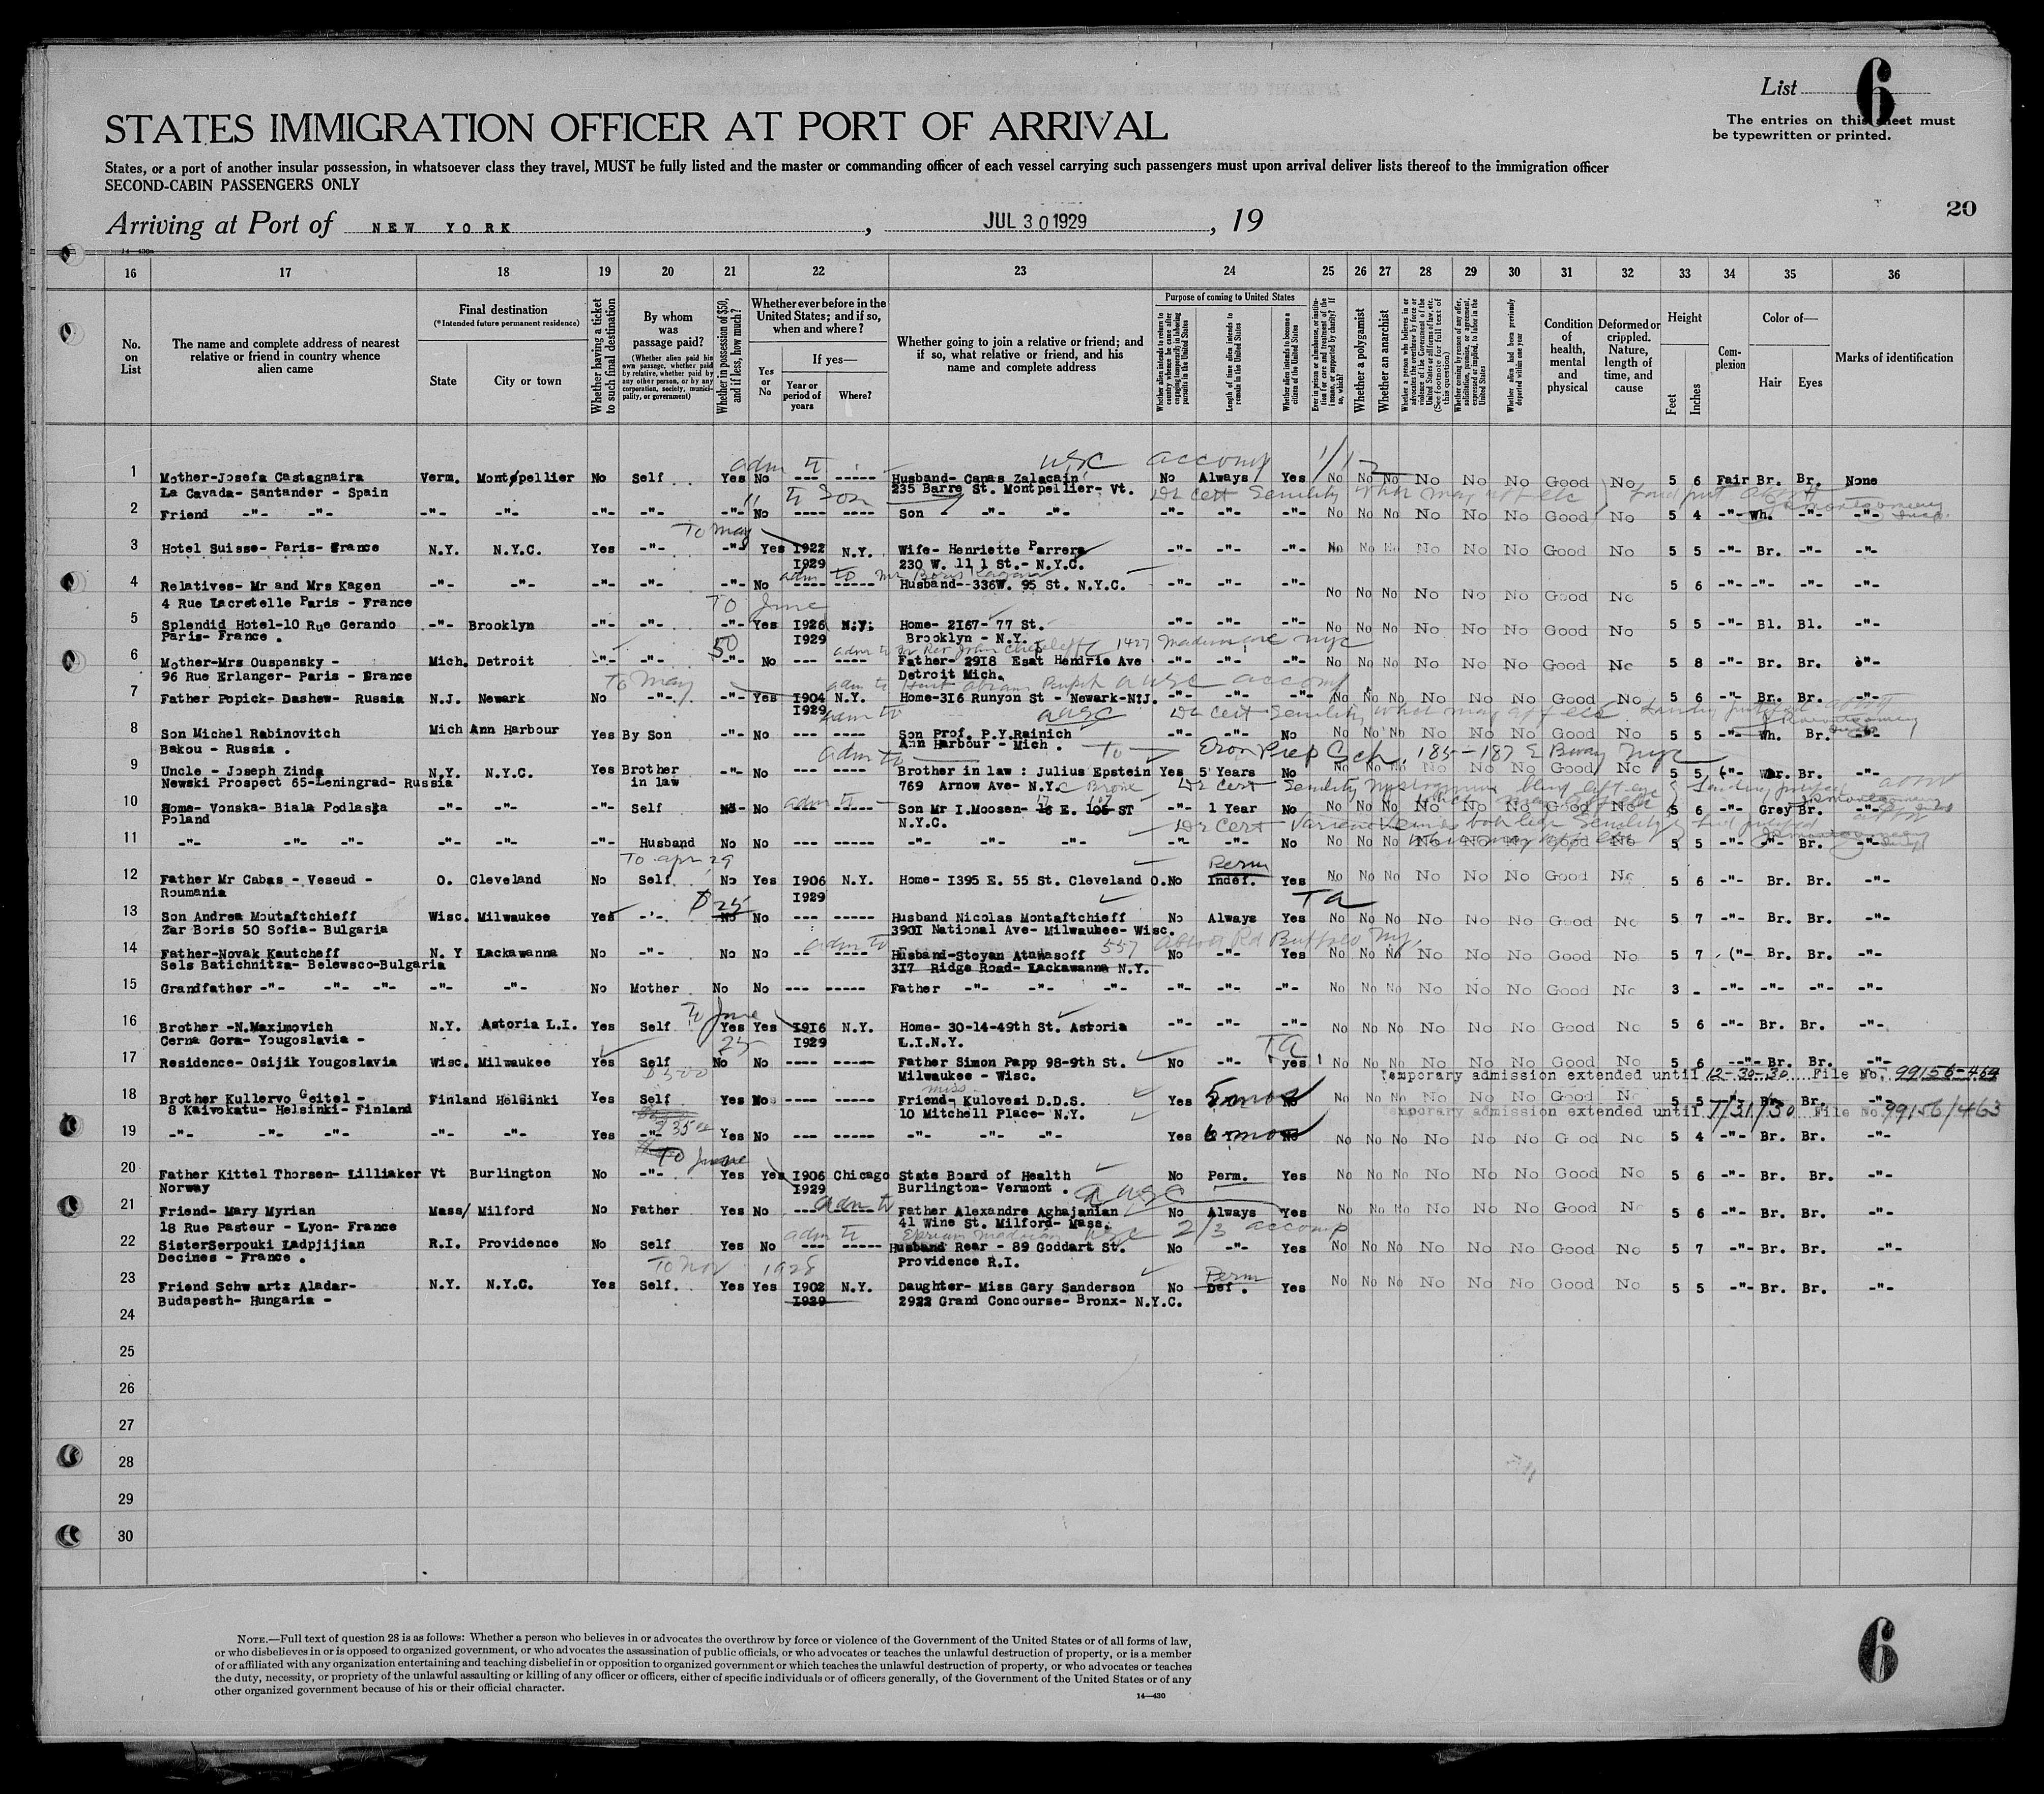 List 6
The entries on this sheet must
be typewritten or printed.
STATES IMMIGRATION OFFICER AT PORT OF ARRIVAL
States, or a port of another insular possession, in whatsoever class they travel, MUST be fully listed and the master or commanding officer of each vessel carrying such passengers must upon arrival deliver lists thereof to the immigration officer
SECOND-CABIN PASSENGERS ONLY
20
Arriving at Port of NEW YORK, JUL 30 1929, 19
14—430a
16 17 18 19 20 21 22 23 24 25 26 27 28 29 30 31 32 33 34 35 36
No. on List
The name and complete address of nearest relative or friend in country whence alien came
Final destination
(*Intended future permanent residence)
State
City or town
Whether having a ticket to such final destination
By whom was passage paid?
(Whether alien paid his own passage, whether paid by relative, whether paid by any other person, or by any corporation, society, municipality, or government)
Whether in possession of $50, and if less, how much?
Whether ever before in the United States; and if so, when and where?
Yes or No
If yes—
Year or period of years
Where?
Whether going to join a relative or friend; and if so, what relative or friend, and his name and complete address
Purpose of coming to United States
Length of time alien intends to remain in the United States
Whether alien intends to become a citizen of the United States
Whether a polygamist
Whether an anarchist
Whether alien had been previously deported within one year
Condition of health, mental and physical
Deformed or crippled. Nature, length of time, and cause
Height
Feet
Inches
Complexion
Color of—
Hair
Eyes
Marks of identification
adm to usc accomp
1 Mother-Josefa Castagnaira Verm. Montpellier No Self Yes No --- ----- Husband- Canas Zalacain No Always Yes No No No No No No Good No 5 6 Fair Br. Br. None
La Cavada- Santander - Spain 235 Barre St. Montpellier- Vt.
" to Son Dr cert Senility
2 Friend -"- -"- -"- -"- -"- -"- -"- No ---- ---- Son -"- -"- -"- -"- -"- No No No No No No Good No 5 4 -"- Wh. -"- -"-
To May
3 Hotel Suisse- Paris- France N.Y. N.Y.C. Yes -"- -"- Yes I922 N.Y. Wife- Henriette Parrera -"- -"- -"- No No No No No No Good No 5 5 -"- Br. -"- -"-
I929 230 W. 111 St.- N.Y.C.
adm to Mr Boris Kagan
4 Relatives- Mr and Mrs Kagen -"- -"- -"- -"- -"- No ---- ----- Husband--336W. 95 St. N.Y.C. -"- -"- -"- No No No No No No Good No 5 6 -"- -"- -"- -"-
4 Rue Lacretelle Paris - France
To June
5 Splendid Hotel-10 Rue Gerando -"- Brooklyn -"- -"- -"- Yes I926 N.Y. Home- 2I67- 77 St. -"- -"- -"- No No No No No No Good No 5 5 -"- Bl. Bl. -"-
Paris- France . I929 Brooklyn - N.Y.
50
6 Mother-Mrs Ouspensky - Mich. Detroit -"- -"- -"- No --- ---- Father- 29I8 Esat Hendrie Ave -"- -"- -"- No No No No No No Good No 5 8 -"- Br. Br. -"-
96 Rue Erlanger- Paris - France Detroit Mich.
To May
7 Father Popick- Dashew- Russia N.J. Newark No -"- -"- Yes I904 N.Y. Home-3I6 Runyon St - Newark-N.J. -"- -"- -"- No No No No No No Good No 5 6 -"- Br. Br. -"-
I929
adm to
8 Son Michel Rabinovitch Mich Ann Harbour Yes By Son -"- No --- ----- Son Prof. P.Y.Rainich -"- -"- No No No No No No No Good No 5 5 -"- Wh. Br. -"-
Bakou - Russia . Ann Harbour - Mich .
adm to Eron Prep Sch. 185-187 E Bway NYC
9 Uncle - Joseph Zinda N.Y. N.Y.C. Yes Brother in law -"- No --- ---- Brother in law : Julius Epstein Yes 5 Years No No No No No No No Good No 5 5 -"- Br. Br. -"-
Newski Prospect 65-Leningrad- Russia 769 Arnow Ave- N.Y.C Bronx
adm to
10 Home- Vonska- Biala Podlaska -"- -"- -"- Self No No --- ----- Son Mr I.Moosen- 16 E. 106 ST -"- 1 Year No No No No No No No Good No 5 6 -"- Grey Br. -"-
Poland N.Y.C.
11 -"- -"- -"- -"- -"- -"- Husband No No --- ----- -"- -"- -"- -"- -"- No No No No No No No Good No 5 5 -"- -"- Br. -"-
To apr 29 Perm
12 Father Mr Cabas - Veseud - O. Cleveland No Self No Yes I906 N.Y. Home- I395 E. 55 St. Cleveland O. No Indef. Yes No No No No No No Good No 5 6 -"- Br. Br. -"-
Roumania I929
$25
13 Son Andrea Moutaftchieff Wisc. Milwaukee Yes -"- No No --- ----- Husband Nicolas Montaftchieff No Always Yes No No No No No No Good No 5 7 -"- Br. Br. -"-
Zar Boris 50 Sofia- Bulgaria 390I National Ave- Milwaukee- Wisc.
adm to 557 Abbott Rd Buffalo NY.
14 Father-Novak Kautcheff N. Y Lackawanna No -"- No No -- ----- Husband-Stoyan Atanasoff No -"- Yes No No No No No No Good No 5 7 -"- Br. Br. -"-
Sels Batichnitza- Belewsco-Bulgaria 3I7 Ridge Road- Lackawanna N.Y.
15 Grandfather -"- -"- -"- -"- -"- No Mother No No --- ----- Father -"- -"- -"- -"- -"- -"- No No No No No No Good No 3 - -"- -"- -"- -"-
To June
16 Brother -N.Maximovich N.Y. Astoria L.I. Yes Self Yes Yes I9I6 N.Y. Home- 30-14-49th St. Astoria -"- -"- -"- No No No No No No Good No 5 6 -"- Br. Br. -"-
Cerna Gora- Yougoslavia - I929 L.I.N.Y.
25
17 Residence- Osijik Yougoslavia Wisc. Milwaukee Yes Self No No ---- ----- Father Simon Papp 98-9th St. No -"- Yes No No No No No No Good No 5 6 -"- Br. Br. -"-
Milwaukee - Wisc. Temporary admission extended until 12-30-30 File No. 99156-464
$500 miss 5 mos
18 Brother Kullervo Geitel - Finland Helsinki Yes Self Yes No ---- ----- Friend- Kulovesi D.D.S. Yes No No No No No No No Good No 5 5 Br. Br. -"-
8 Kaivokatu- Helsinki- Finland 10 Mitchell Place- N.Y. Temporary admission extended until 7/31/30 File No. 99156/463
6 mos
19 -"- -"- -"- -"- -"- Yes -"- Yes No --- ----- -"- -"- -"- Yes No No No No No No No Good No 5 4 -"- Br. Br. -"-
To June
20 Father Kittel Thorsen- Lilliaker Vt Burlington No -"- Yes Yes I906 Chicago State Board of Health No Perm. Yes No No No No No No Good No 5 6 -"- Br. Br. -"-
Norway I929 Burlington- Vermont .
adm to
21 Friend- Mary Myrian Mass/ Milford No Father Yes No ---- ----- Father Alexandre Aghajanian No Always Yes No No No No No No Good No 5 6 -"- Br. Br. -"-
18 Rue Pasteur - Lyon- France 41 Wine St. Milford- Mass.
adm to usc 2/3 accomp
22 SisterSerpouki Ladpjijian R.I. Providence No Self Yes No --- ----- Husband Rear - 89 Goddart St. No -"- Yes No No No No No No Good No 5 7 -"- Br. Br. -"-
Decines - France . Providence R.I.
To Nov 1928 Perm
23 Friend Schw artz Aladar- N.Y. N.Y.C. Yes Self. Yes Yes I902 N.Y. Daughter- Miss Gary Sanderson No Def . Yes No No No No No No Good No 5 5 -"- Br. Br. -"-
Budapesth- Hungaria - I929 2922 Grand Concourse- Bronx- N.Y.C.
24
25
26
27
28
29
30
NOTE.—Full text of question 28 is as follows: Whether a person who believes in or advocates the overthrow by force or violence of the Government of the United States or of all forms of law,
or who disbelieves in or is opposed to organized government, or who advocates the assassination of public officials, or who advocates or teaches the unlawful destruction of property, or is a member
of or affiliated with any organization entertaining and teaching disbelief in or opposition to organized government or which teaches the unlawful destruction of property, or who advocates or teaches
the duty, necessity, or propriety of the unlawful assaulting or killing of any officer or officers, either of specific individuals or of officers generally, of the Government of the United States or of any
other organized government because of his or their official character.
14—430
6